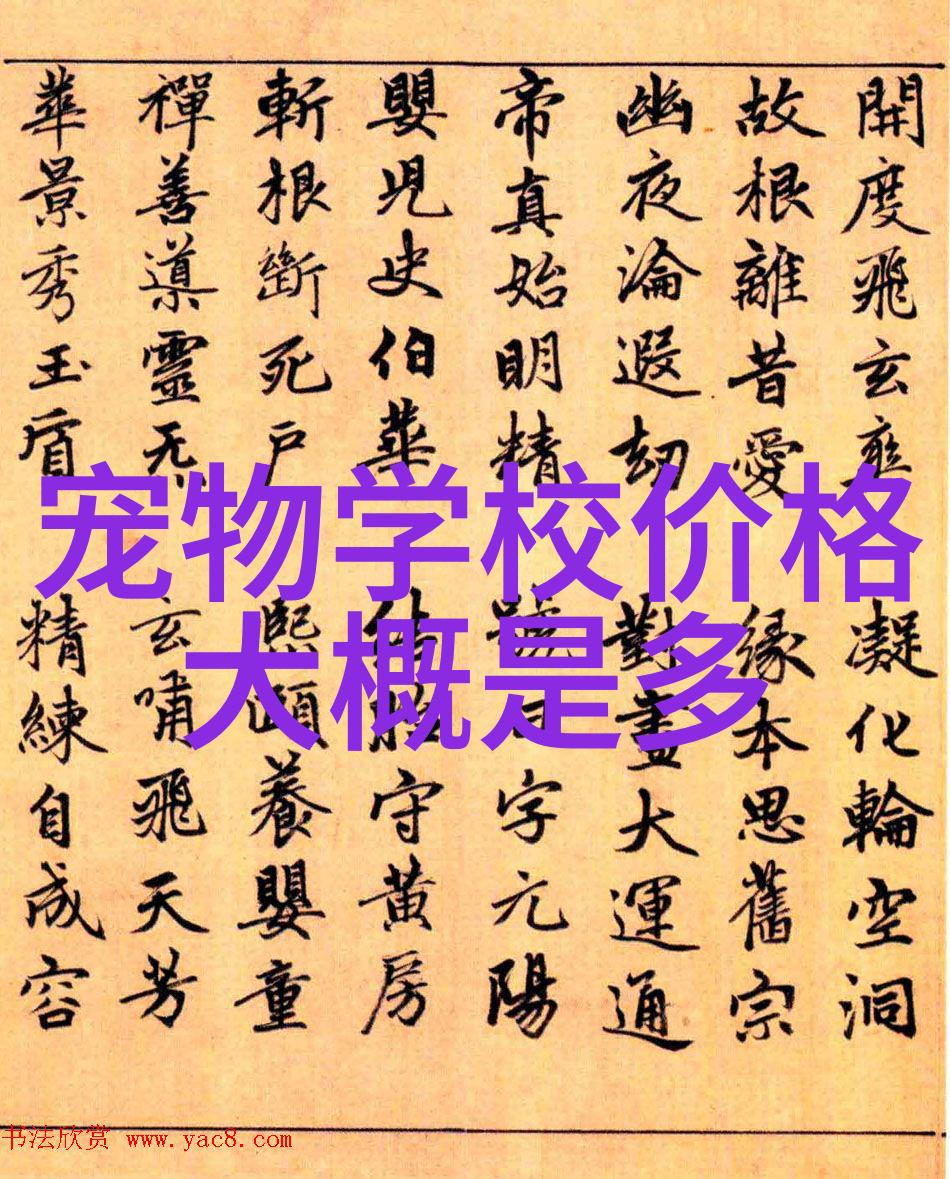 開度飛玄爽 凝化輪空洞
故根離昔愛 緣本思舊宗
幽夜淪遐劫 對盡大運通
帝真始明精 號曰字元陽
嬰兒史伯華 結胎守黃房
斬根斷死戶 熙頤養嬰童
禪善導靈无 玄嘯飛天芳
華景秀玉 精練自成容
宠物学校价格
大概是多
书法欣赏 www.yac8.com